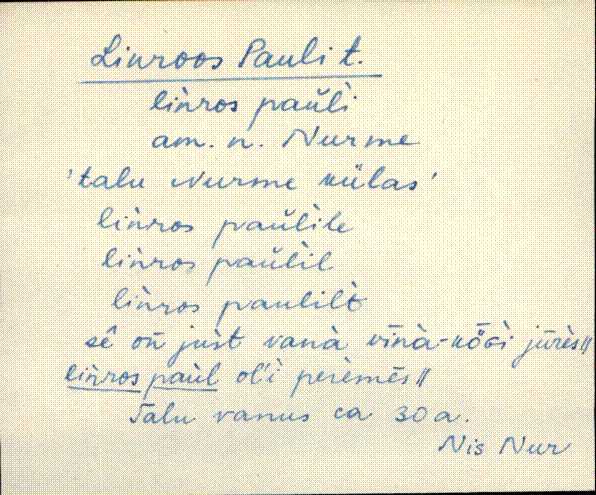 Linroos Pauli t.
lìnros paŭlì
am. n. Nurme
'talu Nurme külas'
lìnros paŭlìle
lìnros paŭlìl
lìnros paulilt
sê oñ jùst vanà vīnà-kȫʙì jūrès //
lìnros paùl ol'ì perèmēs //
Talu vanus ca 30 a.
Nis Nur